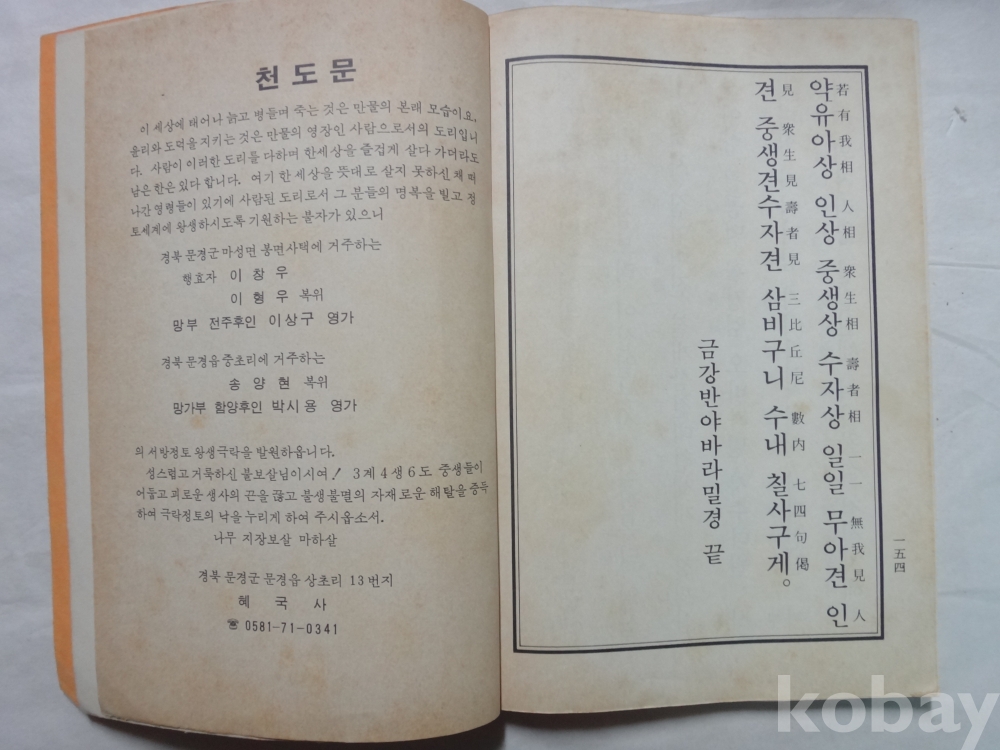 천도문
이 세상에 태어나 늙고 병들며 죽는 것은 만물의 본래 모습이요,
윤리와 도덕을 지키는 것은 만물의 영장인 사람으로서의 도리입니
다. 사람이 이러한 도리를 다하며 한세상을 즐겁게 살다 가더라도
남은 한은 있다 합니다. 여기 한 세상을 뜻대로 살지 못하신 채 떠
나간 영령들이 있기에 사람된 도리로서 그 분들의 명복을 빌고 정
토세계에 왕생하시도록 기원하는 불자가 있으니
경북 문경군 마성면 봉면사택에 거주하는
행효자 이 창 우
이 형 우 복위
망부 전주후인 이상구 영가
경북 문경읍 중초리에 거주하는
송 양 현 복위
망가부 함양후인 박시용 영가
의 서방정토 왕생극락을 발원하옵니다.
성스럽고 거룩하신 불보살님이시여! 3계4생6도 중생들이
어둡고 괴로운 생사의 끈을 끊고 불생불멸의 자재로운 해탈을 증득
하여 극락정토의 낙을 누리게 하여 주시옵소서.
나무 지장보살 마하살
경북 문경군 문경읍 상초리 13번지
혜 국 사
☎ 0581-71-0341
若有我相 人相 衆生相 壽者相 一一 無我見 人
약유아상 인상 중생상 수자상 일일 무아견 인
見 衆生見壽者見 三比丘尼 數內 七四句偈
견 중생견수자견 삼비구니 수내 칠사구게。
금강반야바라밀경 끝
一五四
kobay